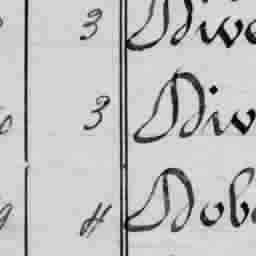 3 Dive
3 Div
4 Dobe